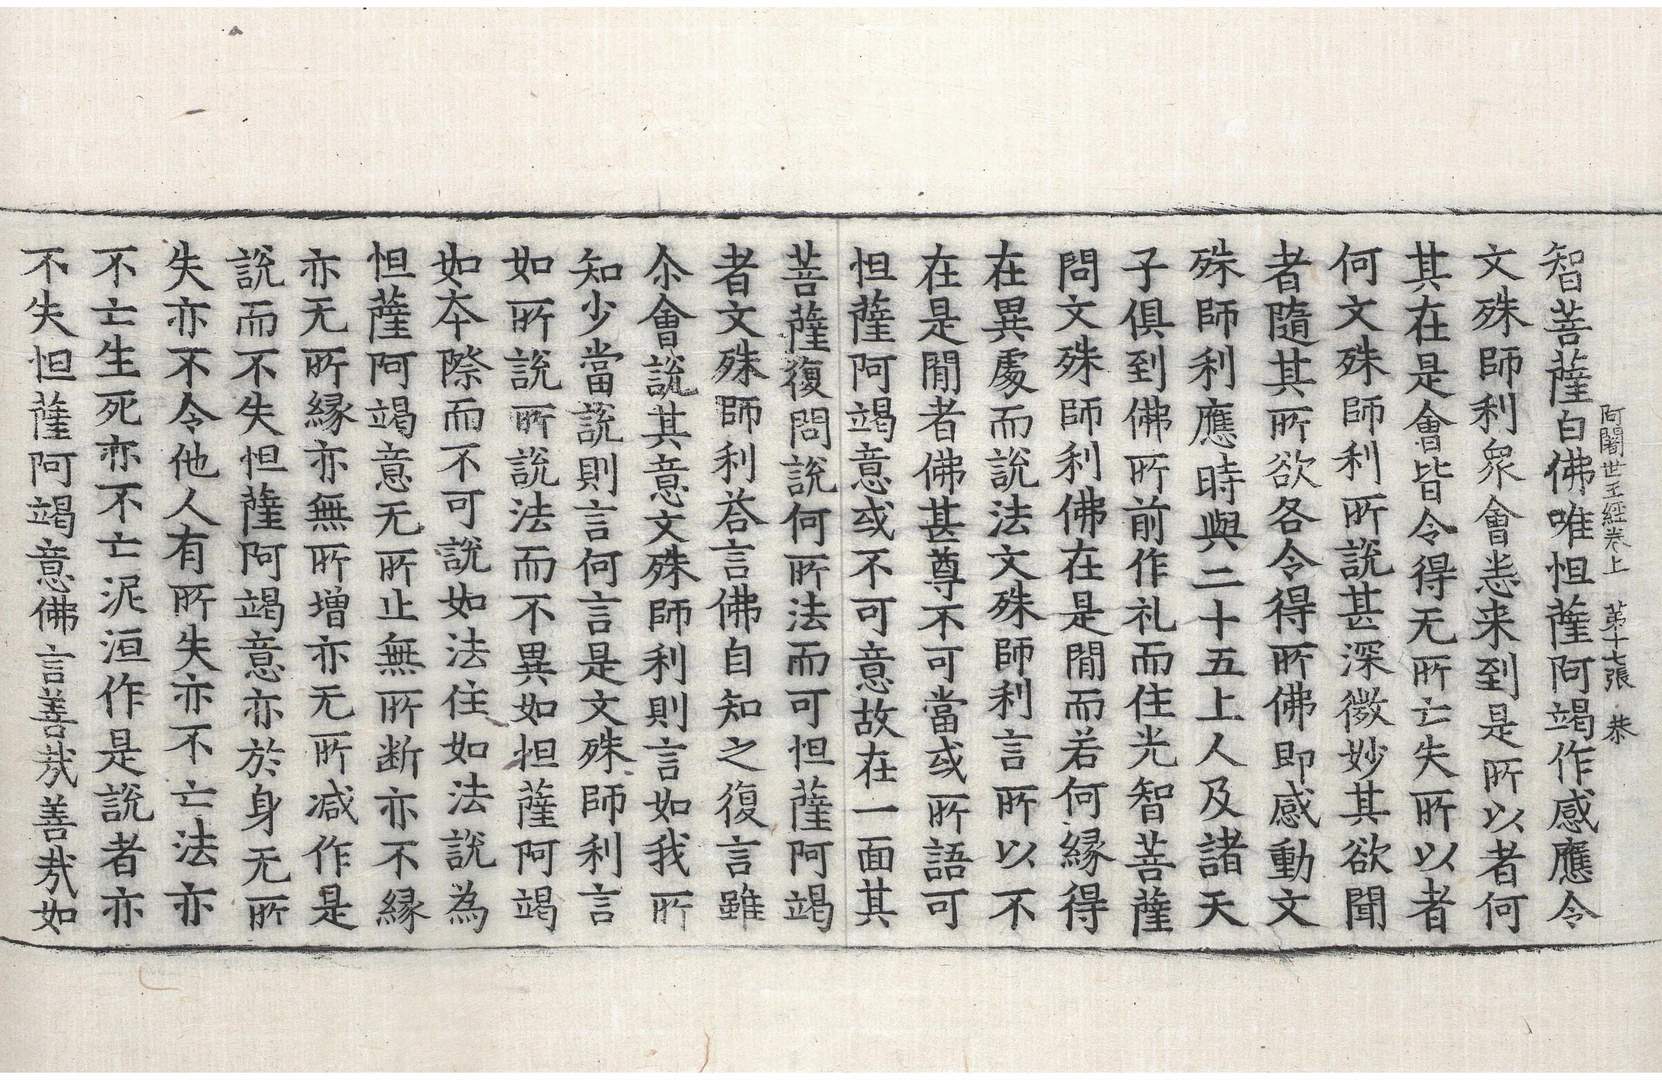 阿闍世王經卷上　第十七張　恭
智菩薩白佛唯怛薩阿竭作感應令
文殊師利衆會悉来到是所以者何
其在是會皆令得无所亡失所以者
何文殊師利所說甚深微妙其欲聞
者隨其所欲各令得所佛即感動文
殊師利應時與二十五上人及諸天
子俱到佛所前作礼而住光智菩薩
問文殊師利佛在是間而若何緣得
在異處而說法文殊師利言所以不
在是間者佛甚尊不可當或所語可
怛薩阿竭意或不可意故在一面其
菩薩復問說何所法而可怛薩阿竭
者文殊師利荅言佛自知之復言雖
尒會說其意文殊師利則言如我所
知少當說則言何言是文殊師利言
如所說所說法而不異如怛薩阿竭
如本際而不可說如法住如法說為
怛薩阿竭意无所止無所断亦不緣
亦无所緣亦無所增亦无所减作是
說而不失怛薩阿竭意亦於身无所
失亦不令他人有所失亦不亡法亦
不亡生死亦不亡泥洹作是說者亦
不失怛薩阿竭意佛言善㢤善㢤如